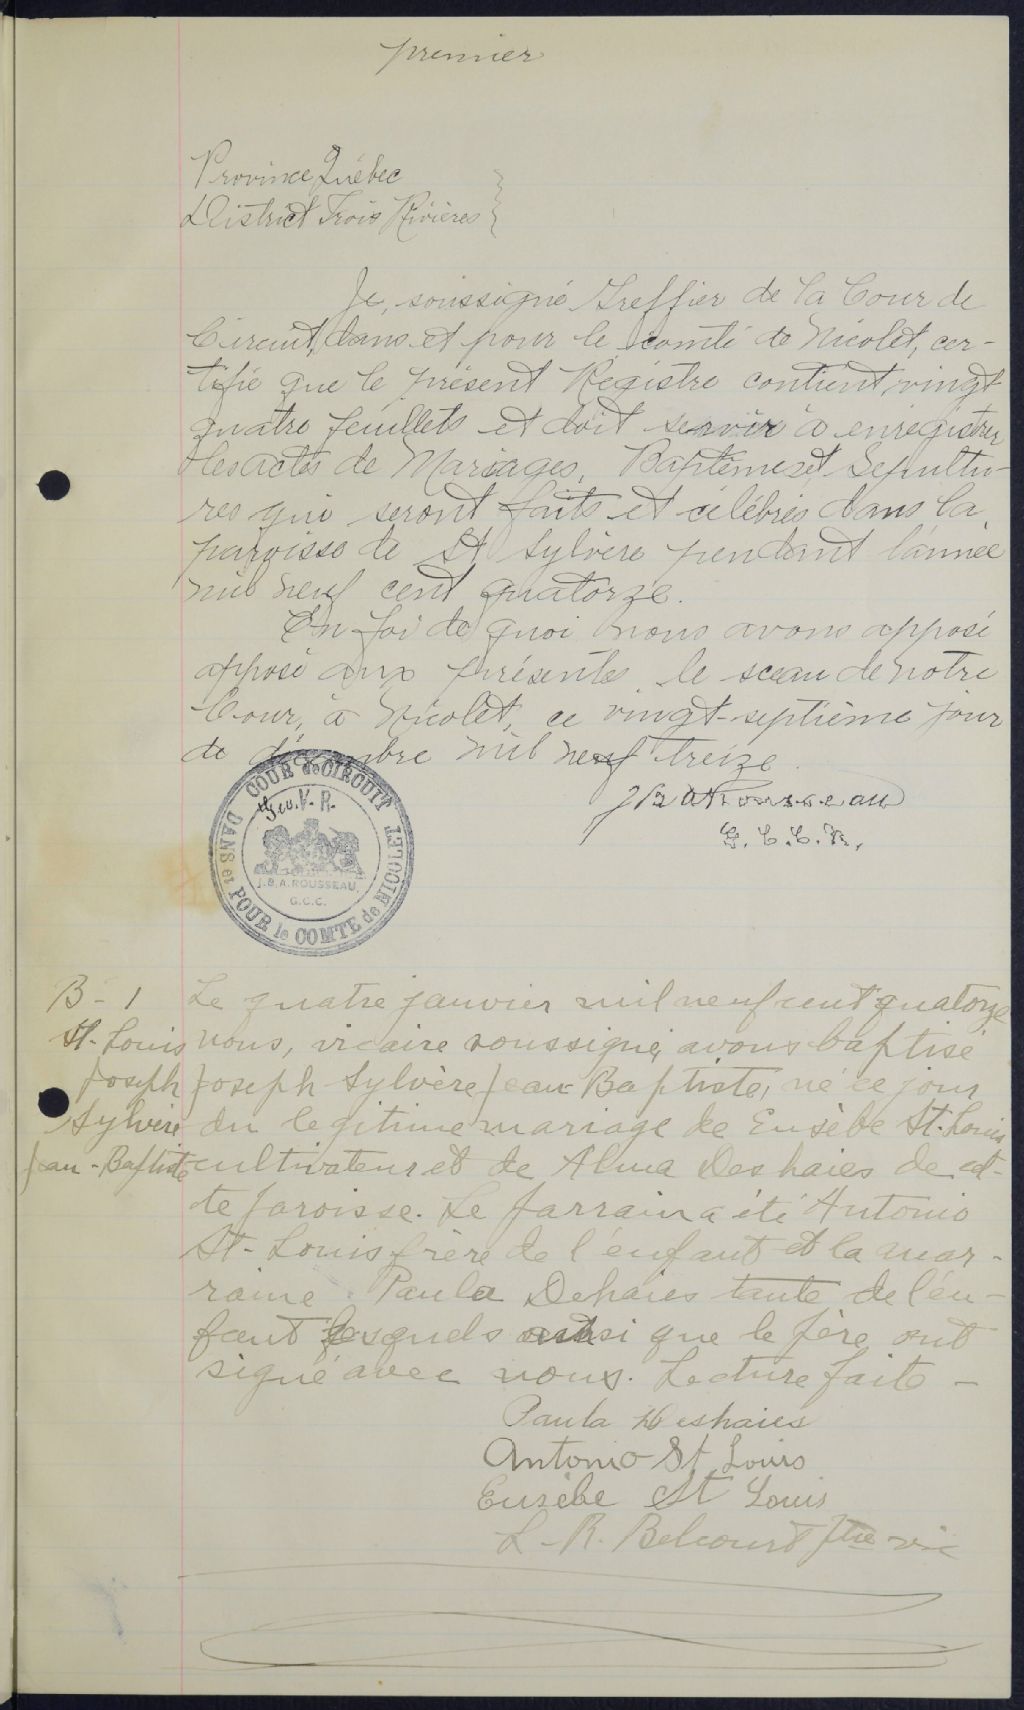 premier
Province Québec
District Trois Rivières
Je, soussigné Greffier de la Cour de
Circuit, dans et pour le comté de Nicolet, cer-
tifie que le présent Régistre contient vingt
quatre feuillets et doit servir à enrégistrer
les actes de Mariages, Baptêmes et Sépultu-
res qui seront faits et célébrés dans la
paroisse de St Sylvère pendant l'année
mil neuf cent quatorze.
En foi de quoi nous avons apposé
apposé aux présentes le sceau de notre
Cour, à Nicolet, ce vingt-septième jour
de décembre mil neuf treize.
JBA Rousseau
G.C.C.N.
COUR de CIRCUIT
DANS et POUR le COMTE de NICOLET
Geo. V. R.
J.B.A. ROUSSEAU,
G.C.C.
B - 1
St-Louis
Joseph
Sylvère
Jean-Baptiste
Le quatre janvier mil neuf cent quatorze
nous, vicaire soussigné, avons baptisé
Joseph Sylvère Jean-Baptiste, né ce jour
du légitime mariage de Eusèbe St-Louis
cultivateur et de Alma Deshaies de cet-
te paroisse. Le parrain a été Antonio
St-Louis frère de l'enfant et la mar-
raine Paula Dehaies tante de l'en-
fant lesquels ainsi que le père ont
signé avec nous. Lecture faite -
Paula Deshaies
Antonio St Louis
Eusèbe St Louis
L. R. Belcourt Ptre vic